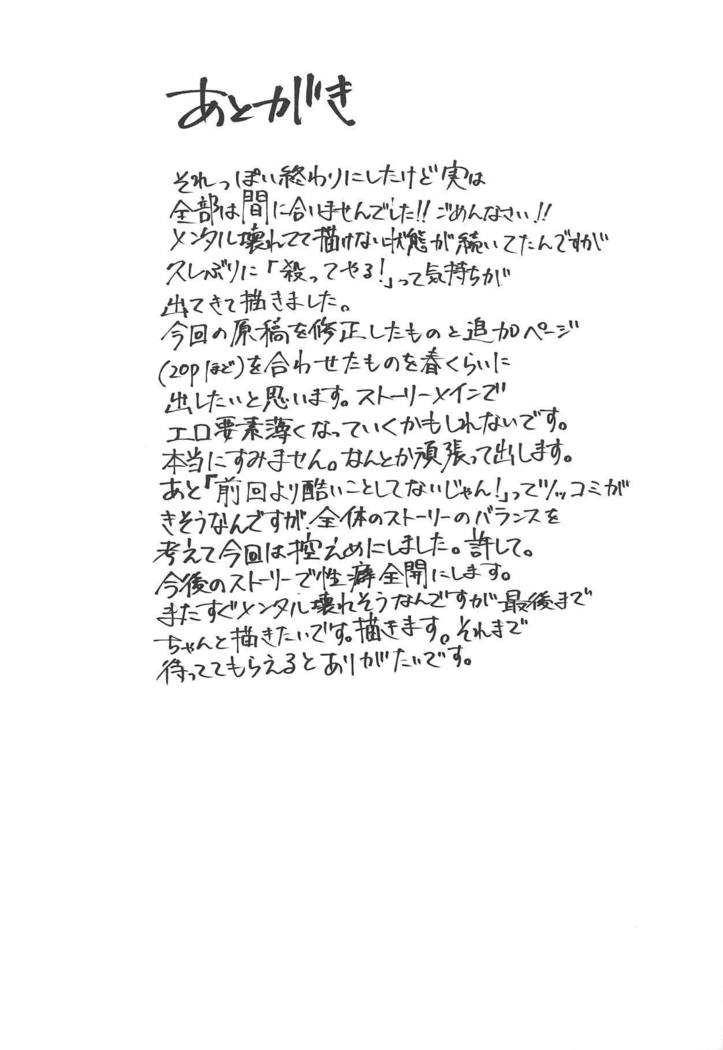 あとがき
それっぽい終わりにしたけど実は
全部は間に合いませんでした!!ごめんなさい!!
メンタル壊れてて描けない状態が続いてたんですが
久しぶりに「殺ってやる!」って気持ちが
出てきて描きました。
今回の原稿を修正したものと追加ページ
(20pほど)を合わせたものを春くらいに
出したいと思います。ストーリーメインで
エロ要素薄くなっていくかもしれないです。
本当にすみません。なんとか頑張って出します。
あと「前回より酷いことしてないじゃん!」ってツッコミが
きそうなんですが、全体のストーリーのバランスを
考えて今回は控えめにしました。許して。
今後のストーリーで性癖全開にします。
またすぐメンタル壊れそうなんですが最後まで
ちゃんと描きたいです。描きます。それまで
待っててもらえるとありがたいです。